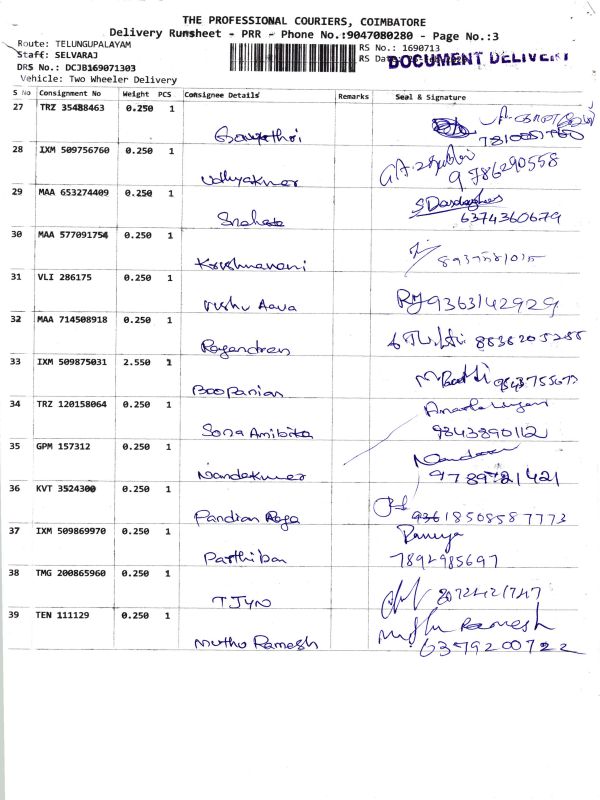 THE PROFESSIONAL COURIERS, COIMBATORE
Delivery Runsheet - PRR - Phone No.:9047080280 - Page No.:3
Route: TELUNGUPALAYAM
RS No.: 1690713
Staff: SELVARAJ
RS Da
DOCUMENT DELIVERY
DRS No.: DCJB169071303
Vehicle: Two Wheeler Delivery
S No Consignment No Weight PCS Consignee Details Remarks Seal & Signature
27 TRZ 35488463 0.250 1
Gayathri
28 IXM 509756760 0.250 1
Udhyakumar 9786290558
29 MAA 653274409 0.250 1
Snehata 6374360679
30 MAA 577091754 0.250 1
Krishnaveni
31 VLI 286175 0.250 1
Vishu 9363142929
32 MAA 714508918 0.250 1
Rajendren
33 IXM 509875031 2.550 1
Boopanian 9843755673
34 TRZ 120158064 0.250 1
Sona 9843890112
35 GPM 157312 0.250 1
Nandakumar 9789721421
36 KVT 3524300 0.250 1
Pandian Raja 8508587773
37 IXM 509869970 0.250 1 Ramya
Parthiban 7892985697
38 TMG 200865960 0.250 1
TJYN
39 TEN 111129 0.250 1 Muthu Ramesh
Muthu Ramesh 6379200722